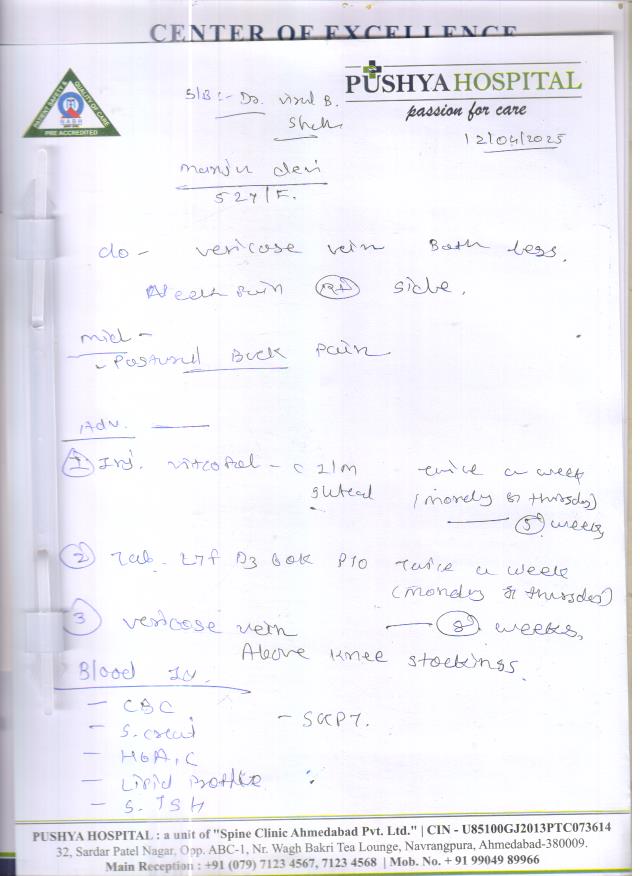 CENTER OF EXCELLENCE
PATIENT SAFETY & QUALITY OF CARE
NABH
PRE ACCREDITED
PUSHYA HOSPITAL
passion for care
S/B :- Dr. Visul B. Shah
12/04/2025
Manju devi
52y/F.
c/o - vericose vein Both legs.
pain (Rt) side.
- Postural Back pain
Adv.
① Inj. - C I/M twice a week
gluteal (monday & thursday)
— ⑤ weeks
② Tab. D3 60K P/O twice a week
(monday & thursday)
— ⑧ weeks,
③ vericose vein
Above knee stockings.
Blood Inv.
- CBC
- SGPT.
- S. creat
- HbA1C
- Lipid profile
- S. TSH
PUSHYA HOSPITAL : a unit of "Spine Clinic Ahmedabad Pvt. Ltd." | CIN - U85100GJ2013PTC073614
32, Sardar Patel Nagar, Opp. ABC-1, Nr. Wagh Bakri Tea Lounge, Navrangpura, Ahmedabad-380009.
Main Reception : +91 (079) 7123 4567, 7123 4568 | Mob. No. + 91 99049 89966